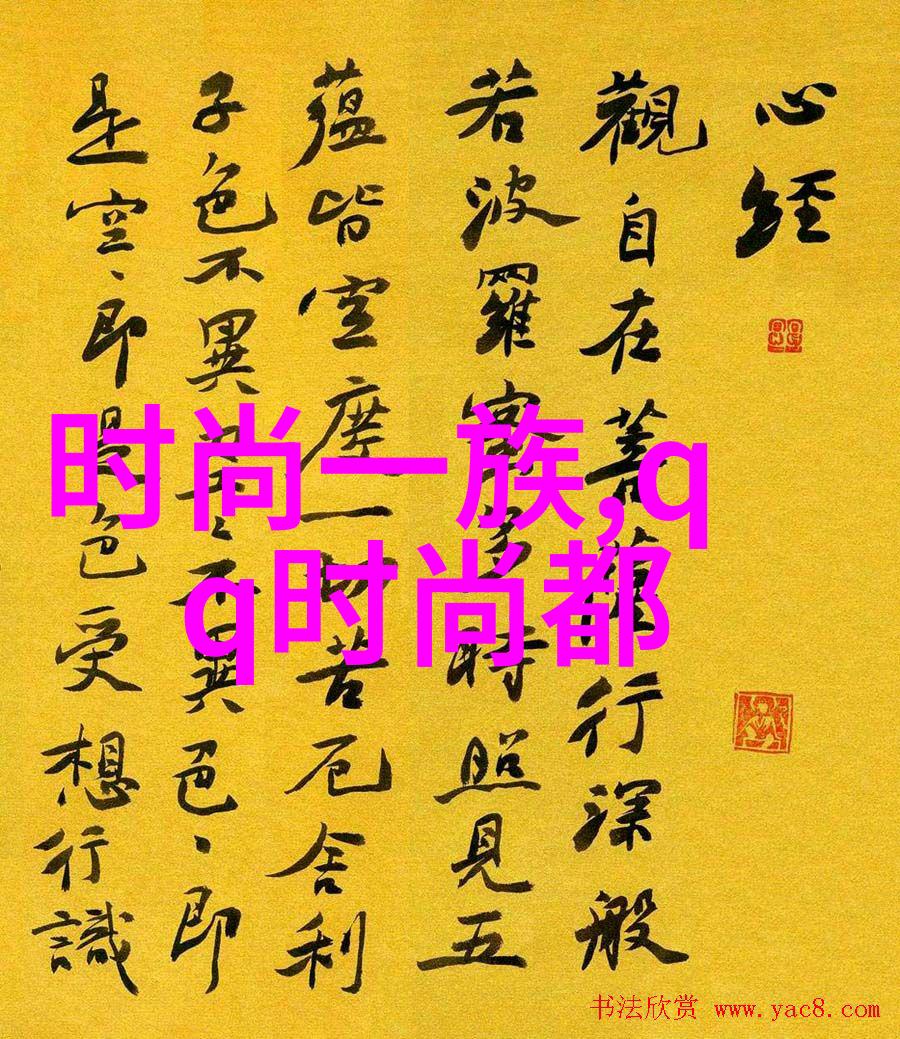 心經
觀自在菩薩行深般
若波羅蜜多時照見五
蘊皆空度一切苦厄舍利
子色不異空、不異色、即
是空、即是色受想行識
时尚一族,q
q时尚都
书法欣赏 www.yac8.com